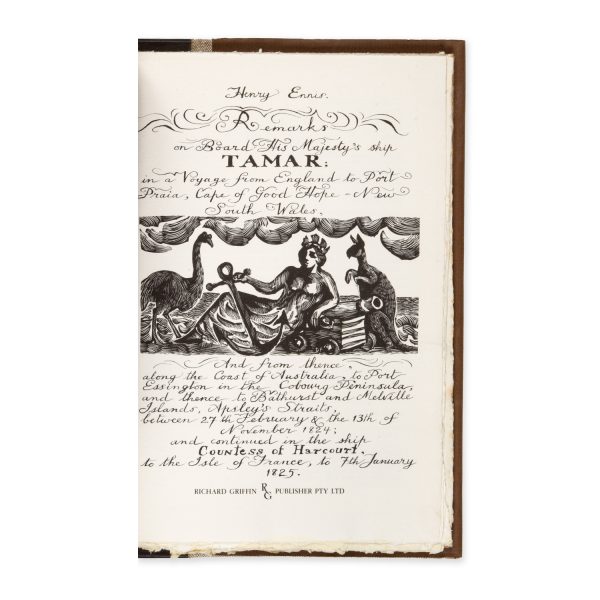 Henry Ennis.
Remarks
on Board His Majesty's ship
TAMAR:
in a Voyage from England to Port
Praia, Cape of Good Hope - New
South Wales.
And from thence
along the Coast of Australia, to Port
Essington in the Cobourg Peninsula,
and thence to Bathurst and Melville
Islands, Apsley's Straits,
between 27th February & the 13th of
November 1824;
and continued in the ship
Countess of Harcourt,
to the Isle of France, to 7th January
1825.
RICHARD GRIFFIN RG PUBLISHER PTY LTD